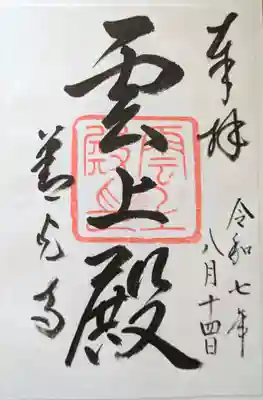 奉拝
令和七年
八月十四日
雲上殿
善光寺